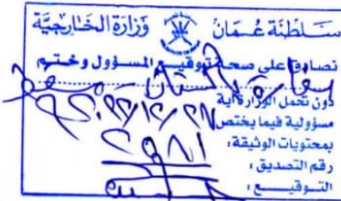 سلطنة عُمان وزارة الخارجية
نصادق على صحة توقيع المسؤول وختم
سفارة باكستان مسقط
دون تحمل الوزارة أية
مسؤولية فيما يختص
بمحتويات الوثيقة،
رقم التصديق :
التوقيع :